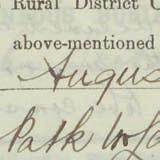 Rural District C
above-mentioned
Augus
Path